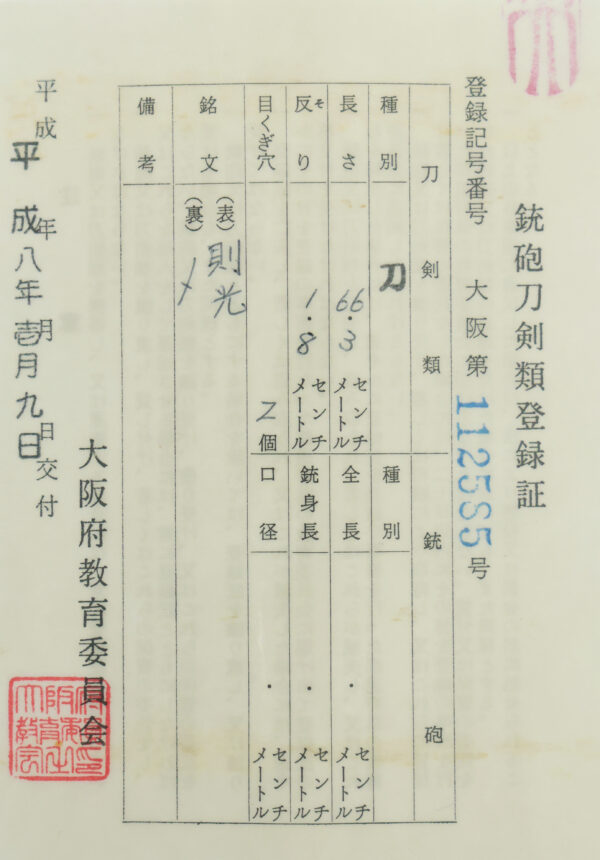 銃砲刀剣類登録証
登録記号番号 大阪第112585号
刀剣類
種別 刀
長さ 66.3センチメートル
反り そ 1.8センチメートル
目くぎ穴 2個
銘文 (表) 則光
(裏) 〆
備考
銃砲
種別
全長 ・ センチメートル
銃身長 ・ センチメートル
口径 ・ センチメートル
平成 年 月 日交付
平成八年壱月九日
大阪府教育委員会